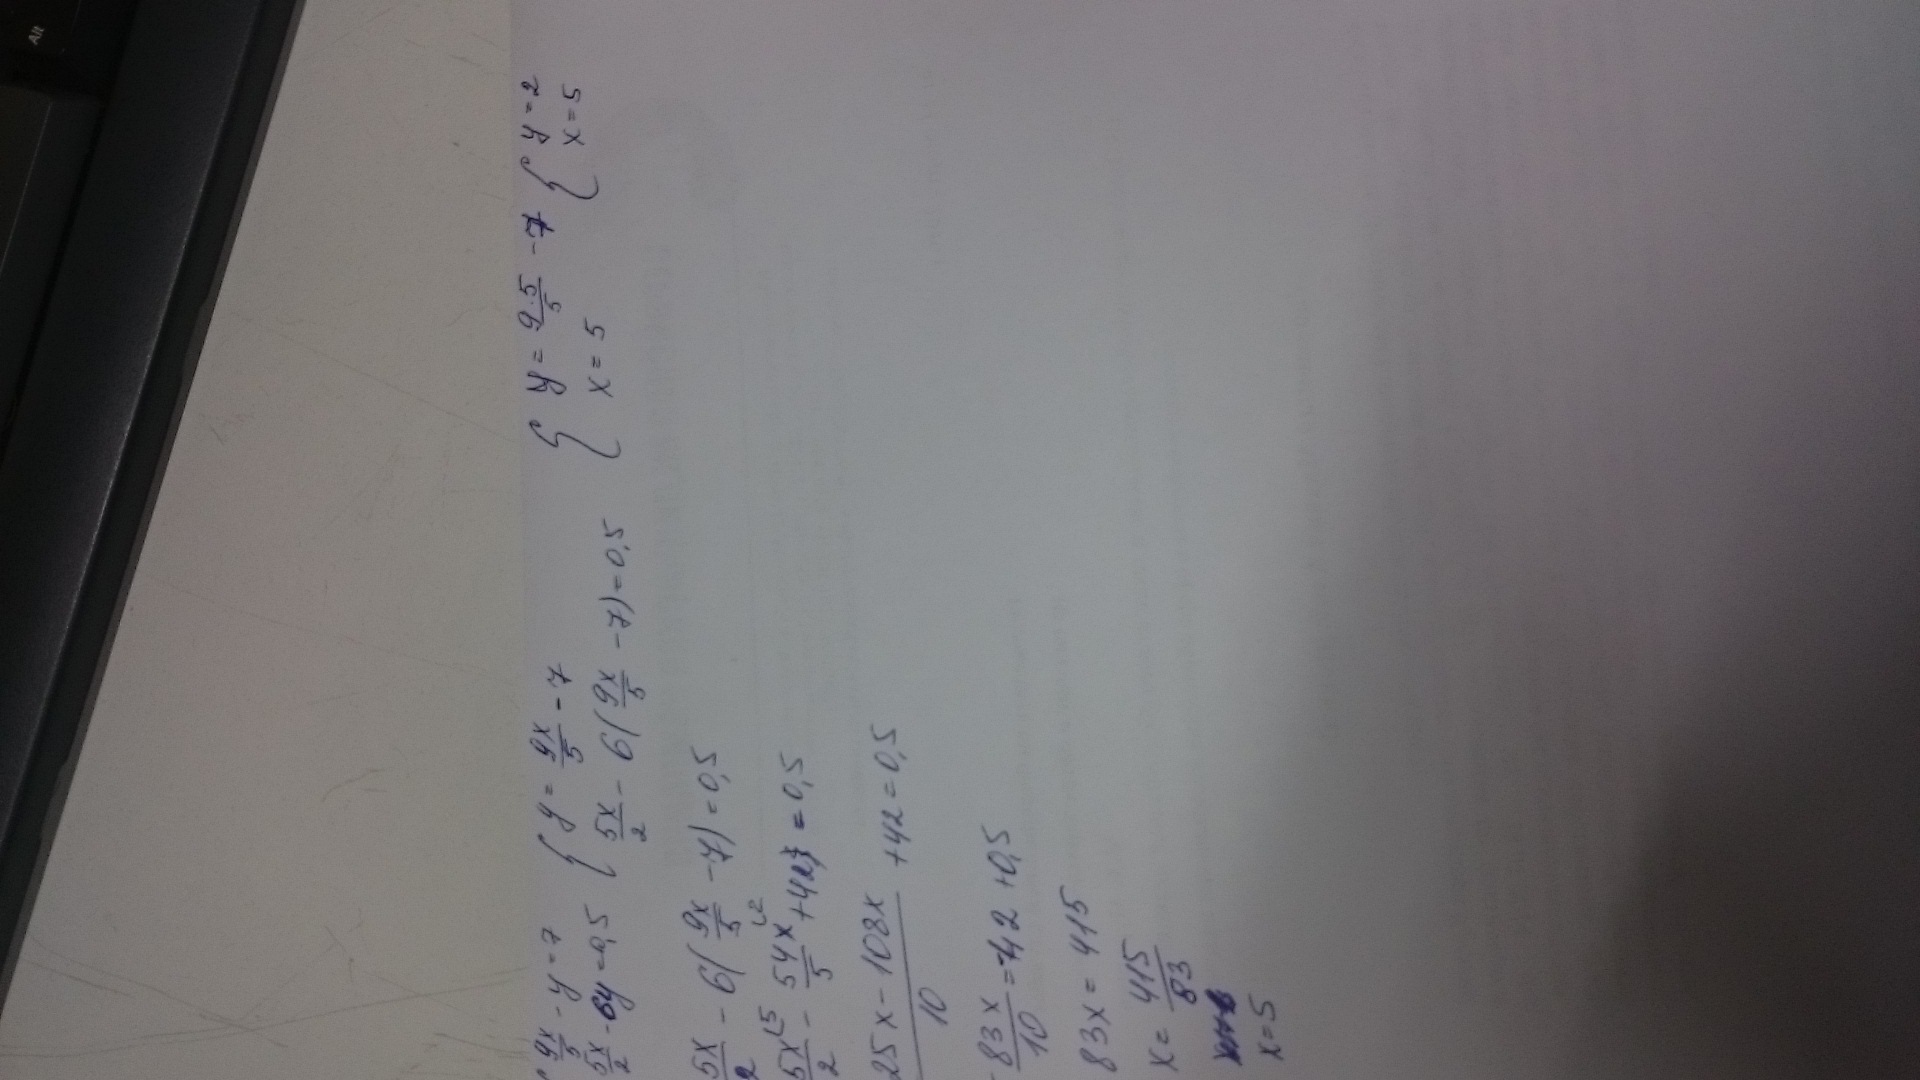 Alt
{ 9x/5 - y = 7 { y = 9x/5 - 7 { y = 9·5/5 - 7 { y = 2
5x/2 - 6y = 0,5 5x/2 - 6(9x/5 - 7) = 0,5 x = 5 x = 5
5x/2 - 6(9x/5 - 7) = 0,5
5x⌊5/2 - 54x⌊2/5 + 42 = 0,5
25x - 108x/10 + 42 = 0,5
-83x/10 = -42 + 0,5
83x = 415
x = 415/83
x = 5